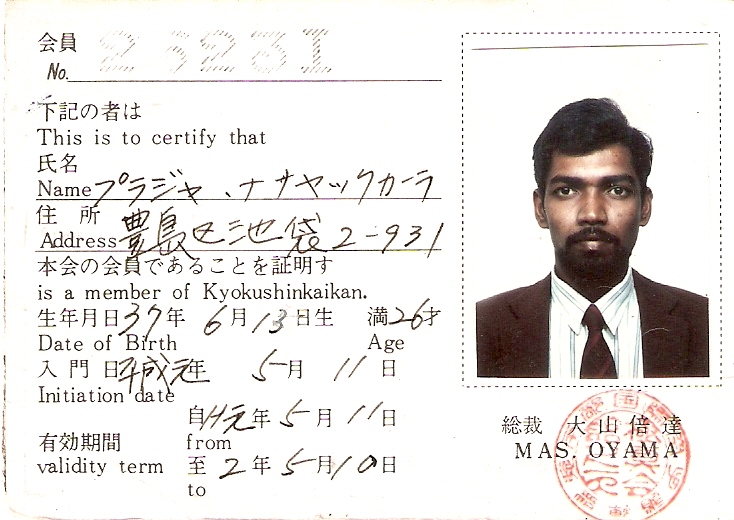 会員
No. 25231
下記の者は
This is to certify that
氏名
Name プラジャ、ナサヤックカーラ
住 所
Address 豊島区池袋2-931
本会の会員であることを証明す
is a member of Kyokushinkaikan.
生年月日 37年 6月 13日生 満26才
Date of Birth Age
入門日 平成元年 5月 11日
Initiation date
自H元年 5月 11日
有効期間 from
validity term 至 2年 5月10日
to
総裁 大山倍達
MAS. OYAMA